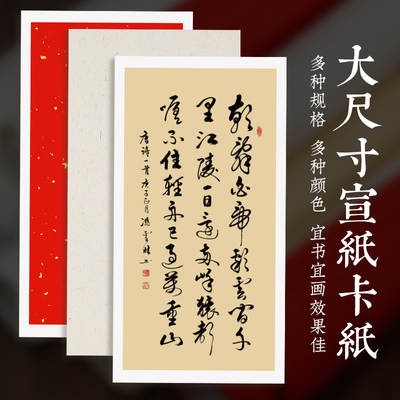 大尺寸宣紙卡紙
多种规格 多种颜色 宜书宜画效果佳
朝辞白帝彩云间千
里江陵一日還两岸猿聲
啼不住輕舟已過萬重山
唐詩一首庚子正月馮